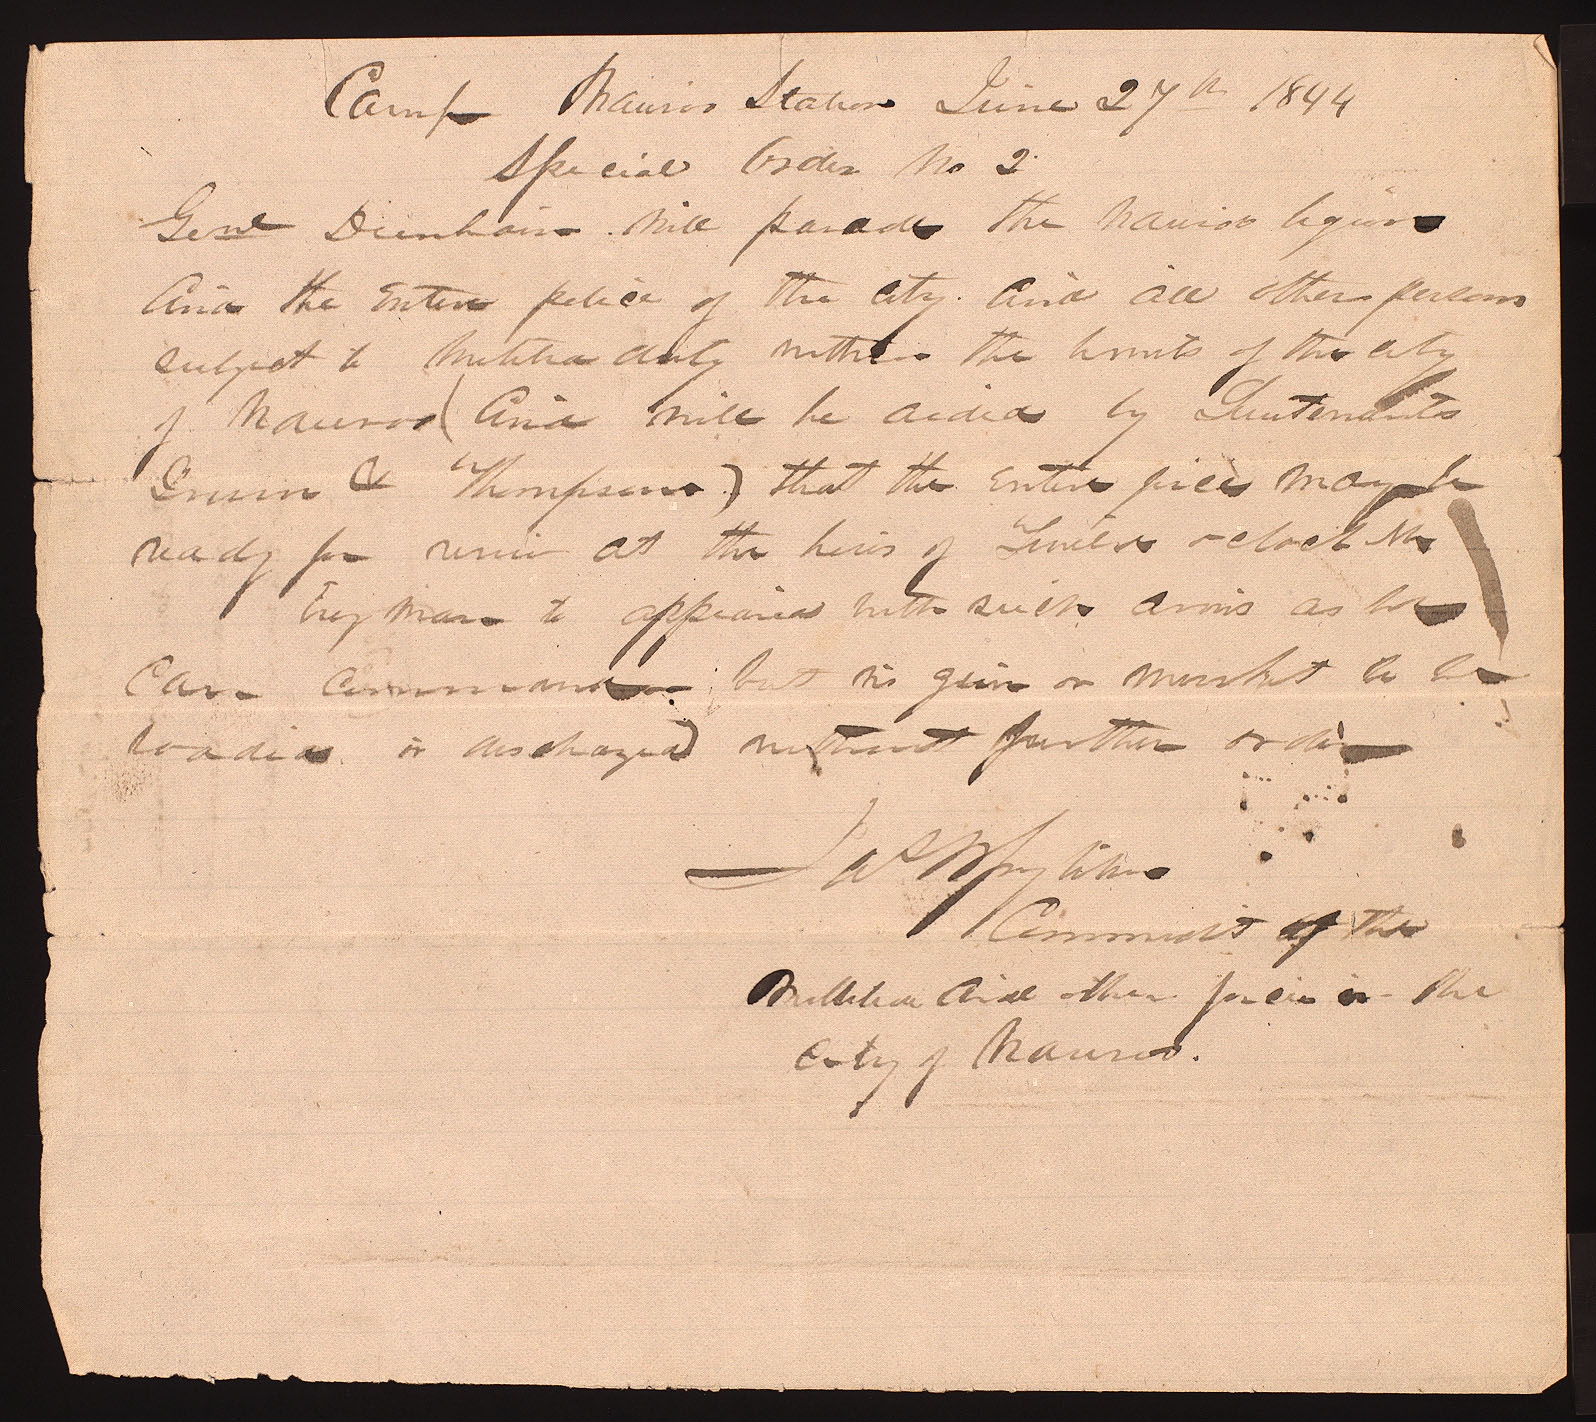 Camp Nauvoo Station June 27th 1844
Special Order No 2
Genl Dunham will parade the Nauvoo legion
And the Entire police of the city. And all other persons
subject to Militia duty within the limits of the city
of Nauvoo (And will be aided by Lieutenants
& Thompson) that the Entire force may be
ready for review at the hour of Twelve oclock M
Evry man to appeared with such arms as he
Can command. but no gun or musket to be
loaded or discharged without further order
Jas W
Commdt of the
Militia And other force in the
City of Nauvoo.